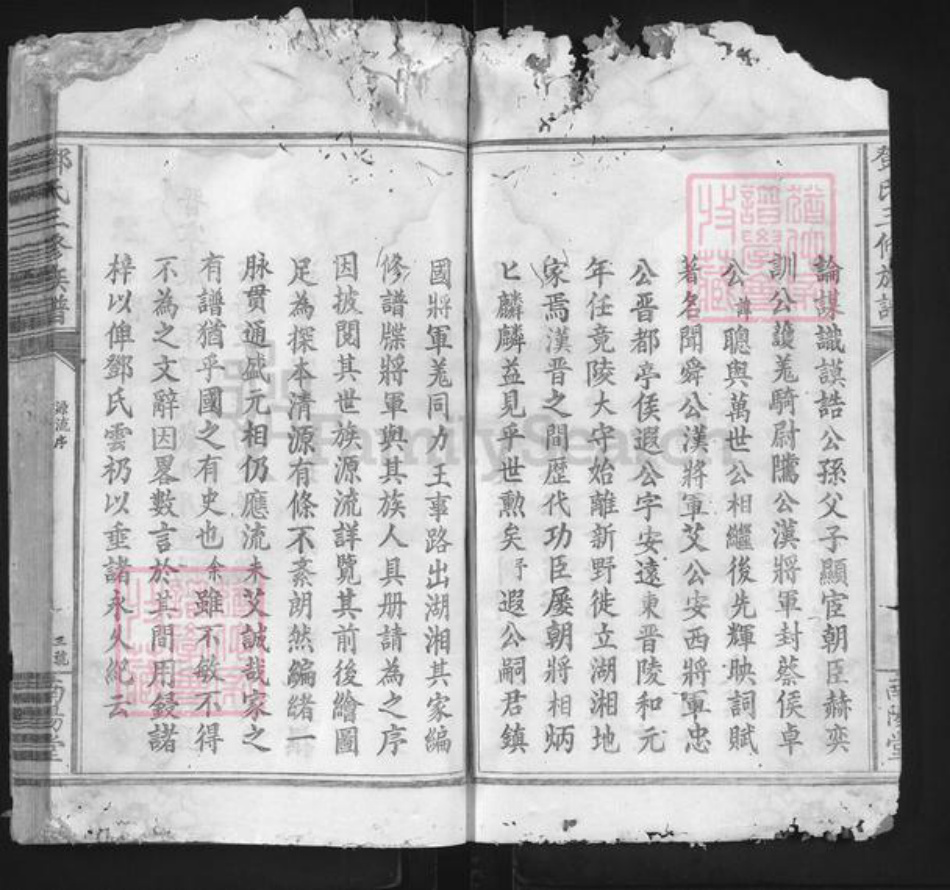 論謀識謨誥公孫父子顯宦朝臣赫奕
訓公護羗騎尉隲公漢將軍封蔡侯卓
公普聰與萬世公相繼後先輝映詞賦
著名聞舜公漢將軍艾公安西將軍忠
公晋都亭侯遐公字安遠東晋陵和元
年任竟陵大守始離新野徙立湖湘地
家焉漢晋之間歴代功臣屡朝將相炳
匕麟麟益見乎世勲矣予遐公嗣君鎮
國將軍羗同力王事路出湖湘其家編
修譜牒將軍與其族人具册請為之序
因披閱其世族源流詳覽其前後繪圖
足為探本清源有條不紊朗然編緒一
脉貫通盛元相仍應流未艾誠哉家之
有譜猶乎國之有史也余雖不敏不得
不為之文辭因畧數言於其間用鋟諸
梓以俾鄧氏雲礽以垂諸永久絕云
鄧氏三修族譜
源流序
三號
南陽堂
FamilySearch